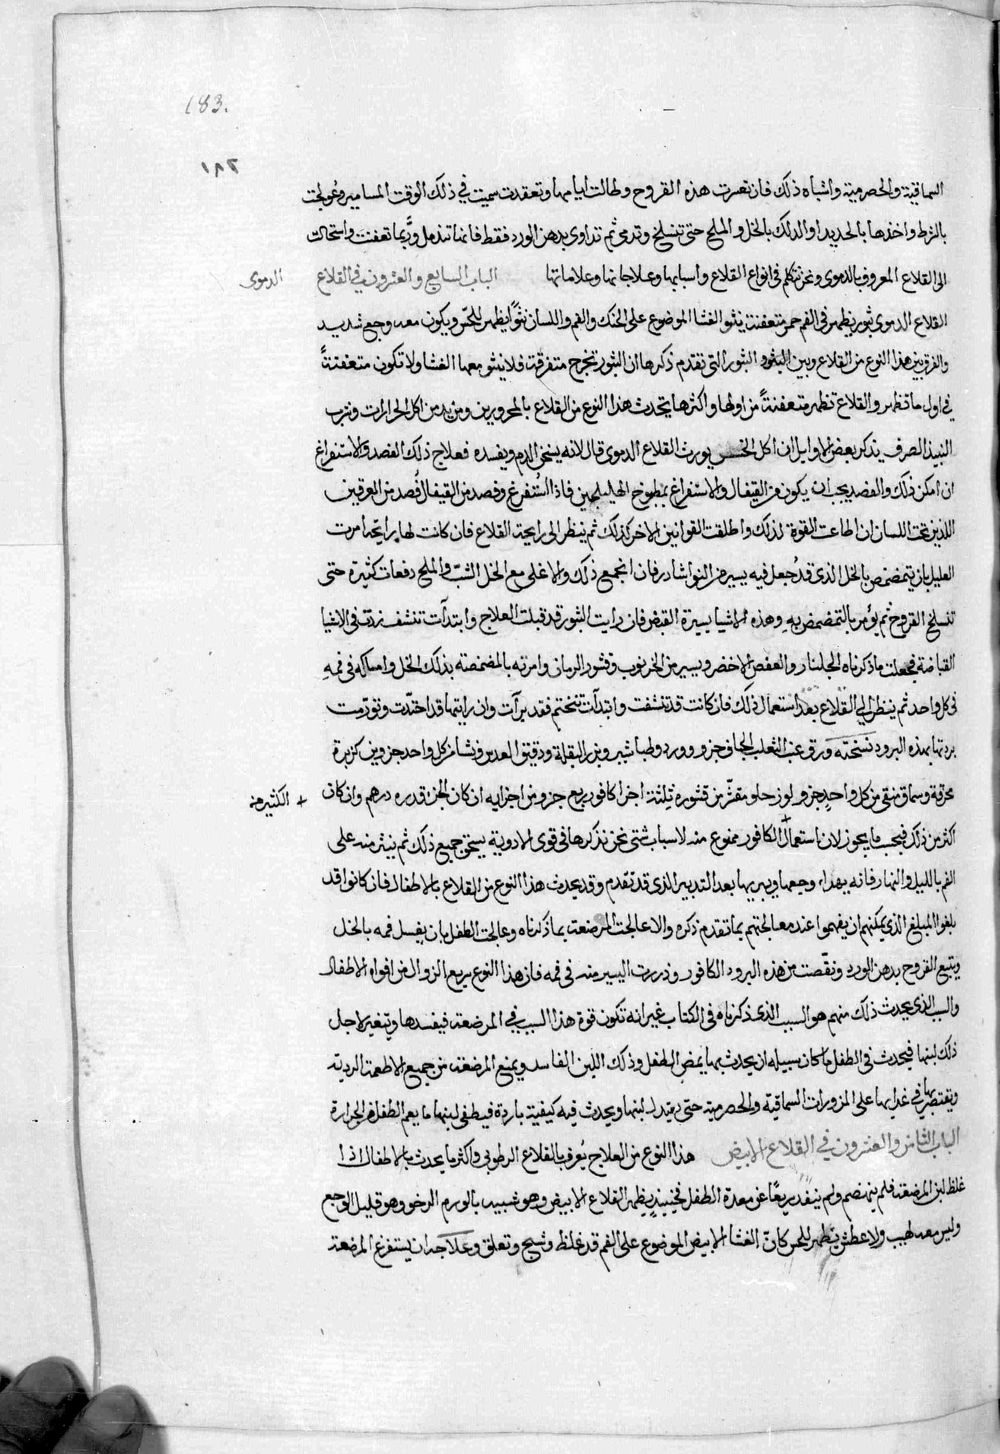 183.
١٨٣
السماقية والحصرمية واشباه ذلك فان تعسرت هذه القروح وطالت ايامها وتعقدت سميت في ذلك الوقت المسامير وعولجت
بالشرط واخذها بالحديد او الدلك بالخل والملح حتى تنسلخ وتدمى ثم تداوى بدهن الورد فقط فانها تندمل وربما تعفنت واستحالت
الى القلاع المعروف بالدموى ونحن نتكلم في انواع القلاع واسبابها وعلاجاتها وعلاماتها الباب السابع والعشرون في القلاع الدموى
القلاع الدموى بثور يظهر في الفم حمر متعفنة ينثو الغشا الموضوع على الحنك والفم واللسان نثوًا يظهر للحس ويكون معه وجع شديد
والفرق بين هذا النوع من القلاع وبين البثور التي تقدم ذكرها ان البثور تخرج متفرقة فلا ينثو معها الغشا ولا تكون متعفنةً
في اول ما تظهر والقلاع تظهر متعفنةً من اولها واكثرها يحدث هذا النوع من القلاع بالمحرورين ومن يدمن اكل الحرارات وشرب
النبيذ الصرف يذكر بعض الاوايل ان اكل يورث القلاع الدموى قال لانه يسخن الدم ويفسده فعلاج ذلك الفصد والاستفراغ
ان امكن ذلك والفصد يجب ان يكون من القيفال والاستفراغ بمطبوخ الهليلجين فاذا استفرغ وفصد من القيفال فُصد من العرقين
اللذين تحت اللسان ان طاعت القوة لذلك واطلقت القوانين الاخر كذلك ثم ينظر الى رايحة القلاع فان كانت لها رايحة امرت
العليل بان يتمضمض بالخل الذى قد جعل فيه يسير من النواشادر فان انجمع ذلك والا غلى مع الخل الشب والملح دفعات كثيرة حتى
تنسلخ القروح ثم يؤمر بالتمضمض به وهذه الاشيا يسيرة القبض فان رايت البثور قد قبلت العلاج وابتدأت تنشف زدت في الاشيا
القباضة فجعلت ما ذكرناه الجلنار والعفص الاخضر ويسير من الخرنوب وقشور الرمان وامرته بالمضمضة بذلك الخل وامساكه في فمه
في كل واحد ثم ينظر الى القلاع بعد استعمال ذلك فان كانت قد تنشفت وابتدأت تنختم فقد برأت وان رايتها قد احتدّت وتورّمت
بردتها بهذه البرود نسخته ورق عنب الثعلب الجاف جزو وورد وطباشير وبزر البقلة ودقيق العدس ونشا من كل واحد جزوين كزبرة
محرقة وسماق منقى من كل واحدٍ جزو لوز حلو مقشّر من قشوره ثلثة اجزا كافور ربع جزو من اجزايه ان كان الجز قدره درهم وان كان
+ الكثير منه
اكثر من ذلك فبحسب ما يجوز لان استعمال الكافور ممنوع منه لاسباب شتى نحن نذكرها في قوى الادوية يسحق جميع ذلك ثم ينثر منه على
الفم بالليل والنهار فانه يهدا وجعها ويبريها بعد التدبير الذى قد تقدم وقد يحدث هذا النوع من القلاع بالاطفال فان كانوا قد
بلغوا المبلغ الذى يمكنهم ان يفهموا عند معالجتهم بما تقدم ذكره والا عالجت المرضعة بما ذكرناه وعالجت الطفل بان يغسل فمه بالخل
ويتبع القروح بدهن الورد ونقّصت من هذه البرود الكافور وذررت اليسير منه في فمه فان هذا النوع سريع الزوال من افواه الاطفال
والسبب الذى يحدث ذلك منهم هو السبب الذى ذكرناه في الكتاب غير انه تكون قوة هذا السبب في المرضعة فيفسدها ويتغير لاجل
ذلك لبنها فيحدث في الطفل ما كان سبيله ان يحدث بها يمص الطفل وذلك اللبن الفاسد ويمنع المرضعة من جميع الاطعمة الردية
ويقتصر بها في غذايها على المزورات السماقية والحصرمية حتى يعتدل لبنها ويحدث فيه كيفية باردة فيطفى لبنها ما بفم الطفل من الحرارة
الباب الثامن والعشرون في القلاع الابيض هذا النوع من العلاج يُعرف بالقلاع الرطوبي واكثر ما يحدث بالاطفال اذا
غلظ لبن المرضعة فلم ينهضم ولم ينفد سريعًا عن معدة الطفل فحينيذٍ يظهر القلاع الابيض وهو شبيه بالورم الرخو وهو قليل الوجع
وليس معه لهيب ولا عطش يظهر للحس كانّ الغشا الابيض الموضوع على الفم قد غلظ وشبح وتعلق وعلاجه ان يستفرغ المرضعة